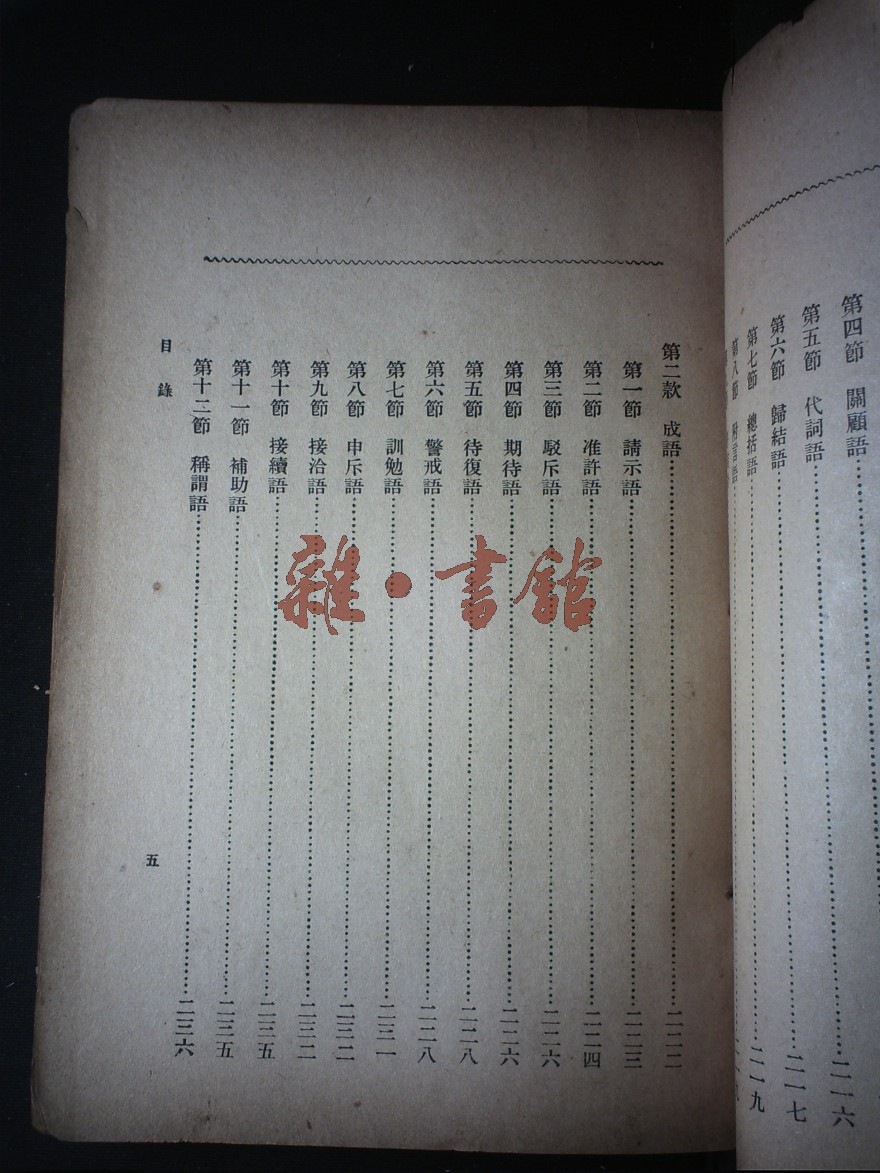 第四節 關顧語
第五節 代詞語……二一六
第六節 歸結語……二一七
第七節 總括語……二一九
第八節 附言語
第二款 成語……二二二
第一節 請示語……二二三
第二節 准許語……二二四
第三節 駁斥語……二二六
第四節 期待語……二二六
第五節 待復語……二二八
第六節 警戒語……二二八
第七節 訓勉語……二三一
第八節 申斥語……二三二
第九節 接洽語……二三二
第十節 接續語……二三五
第十一節 補助語……二三五
第十二節 稱謂語……二三六
目錄
五
雜·書館